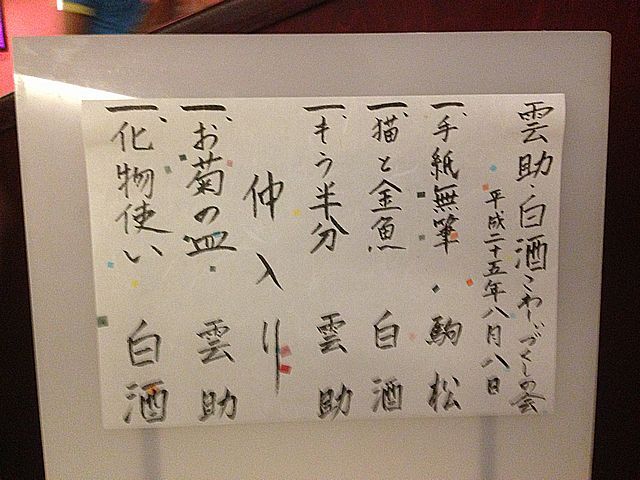 雲助・白酒こわ〜いづくしの会
平成二十五年八月八日
一、手紙無筆・駒松
一、猫と金魚 白酒
一、もう半分 雲助
仲入り
一、お菊の皿 雲助
一、化物使い 白酒